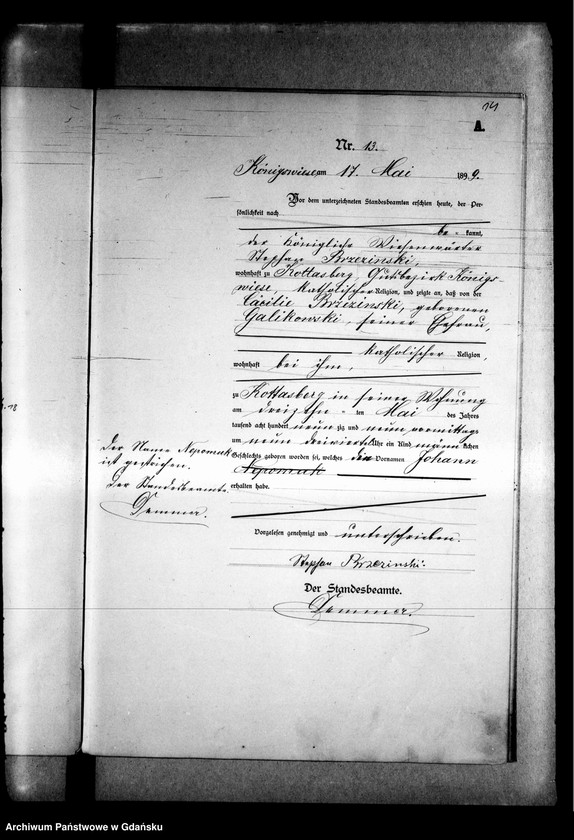 14
A.
Nr. 13.
Königswiese am 17. Mai 1899.
Vor dem unterzeichneten Standesbeamten erschien heute, der Per-
sönlichkeit nach
be = kannt,
der Königliche Wiesenwärter
Stephan Brzezinski,
wohnhaft zu Kottasberg, Gutsbezirk Königs-
wiese, katholischer Religion, und zeigte an, daß von der
Cäcilie Brzezinski, geborenen
Galikowski, seiner Ehefrau,
katholischer Religion
wohnhaft bei ihm,
zu Kottasberg in seiner Wohnung
am dreizehn = ten Mai des Jahres
tausend acht hundert neun zig und neun vormittags
um neun dreiviertel Uhr ein Kind männ lichen
Geschlechts geboren worden sei, welches die Vornamen Johann
Nepomuk
erhalten habe.
Der Name Nepomuk
ist gestrichen.
Der Standesbeamte.
Demmer.
Vorgelesen genehmigt und unterschrieben.
Stephan Brzezinski.
Der Standesbeamte.
Demmer.
Archiwum Państwowe w Gdańsku